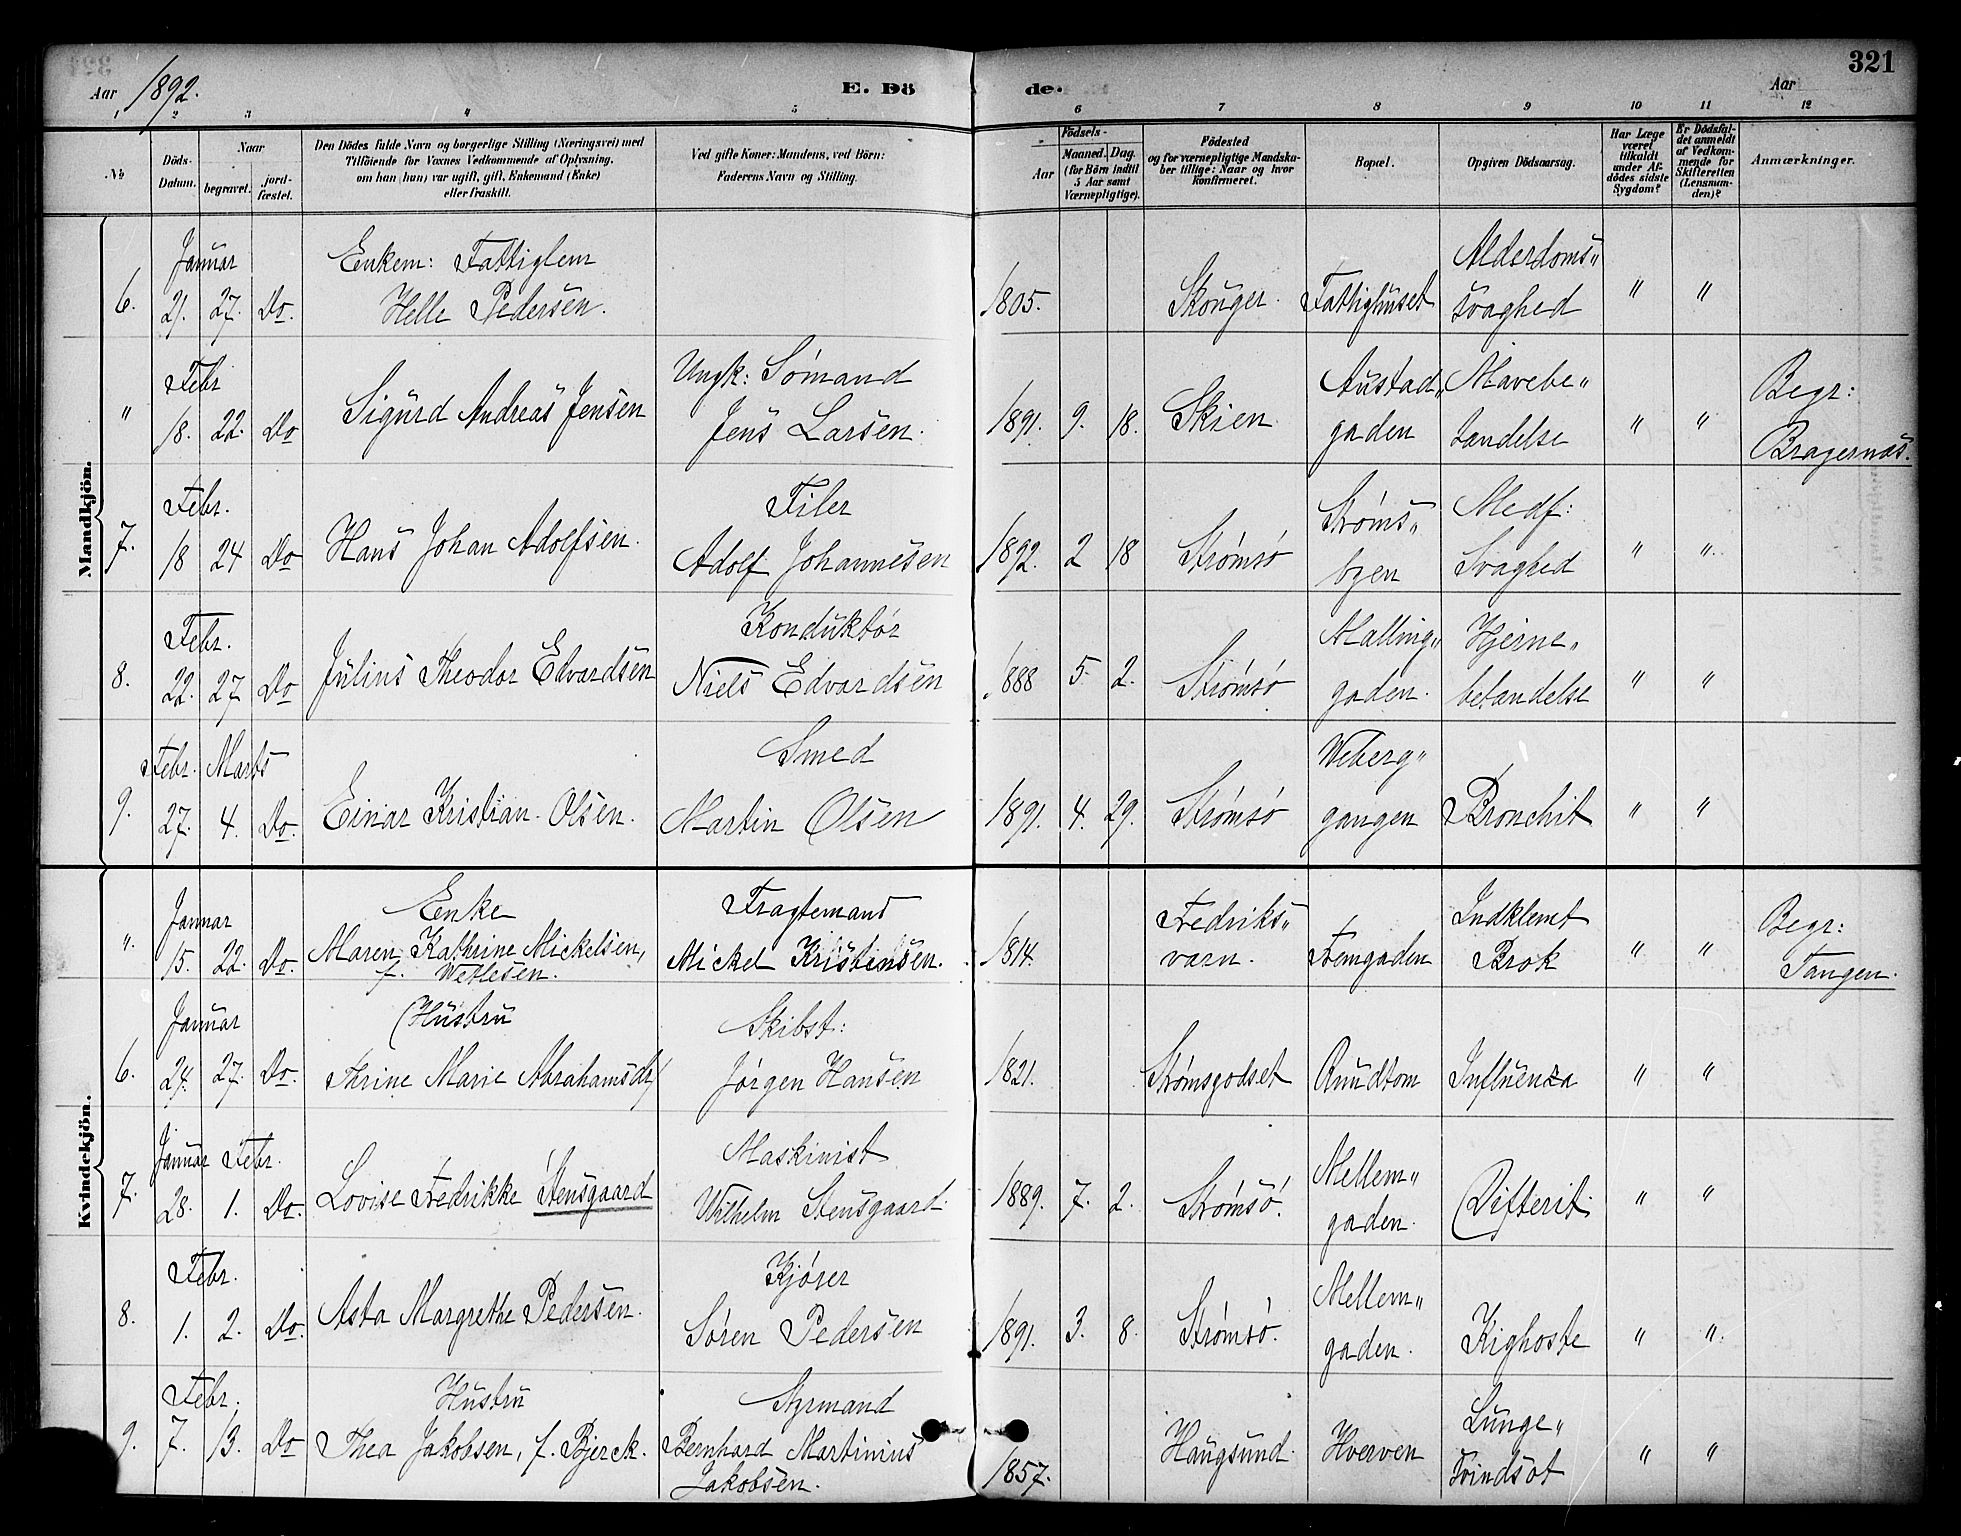 321
Aar 1892. E. Dö de. Aar
1 2 3 4 5 6 7 8 9 10 11 12
№
Döds-Datum.
Naar
begravet.
jord-fæstet.
Den Dödes fulde Navn og borgerlige Stilling (Næringsvei) med
Tilföiende for Voxnes Vedkommende af Oplysning,
om han (hun) var ugift, gift, Enkemand (Enke)
eller fraskilt.
Ved gifte Koner: Mandens, ved Börn:
Faderens Navn og Stilling.
Födsels-
Aar
Maaned. Dag.
(for Börn indtil
5 Aar samt
Værnepligtige).
Födested
og for værnepligtige Mandska-
ber tillige: Naar og hvor
konfirmeret.
Bopæl.
Opgiven Dödsaarsag.
Har Læge
været
tilkaldt
under Af-
dödes sidste
Sygdom?
Er Dödsfal-
det anmeldt
af Vedkom-
mende for
Skifteretten
(Lensman-
den)?
Anmærkninger.
Mandkjön.
Januar Enkem: Fattiglem Alderdoms„
6. 21. 27. Do. Helle Pedersen. 1805. Skouger. Fattighuset svaghed " "
Febr Ungk: Sømand Austad„ Mavebe„ Begr:
" 18. 22. Do Sigurd Andreas Jensen Jens Larsen. 1891. 9. 18. Skien gaden tændelse " " Bragernæs.
Febr. Filer Strøms„ Medf:
7. 18 24 Do Hans Johan Adolfsen. Adolf Johannesen 1892. 2 18 Strømsø byen Svaghed " "
Febr. Konduktør Malling„ Hjerne„
8. 22. 27 Do Julius Theodor Edvardsen Niels Edvardsen 1888 5. 2. Strømsø gaden. betændelse " "
Febr. Marts Smed Weberg„
9. 27. 4. Do. Einar Kristian Olsen. Martin Olsen 1891. 4. 29. Strømsø gangen Bronchit " "
Kvindekjön.
Januar Enke Fragtemand Fredriks„ Indklemt Begr:
". 15. 22. Do. Maren Kathrine Mickelsen, Mickel Kristensen. 1814. værn. Femgaden Brok " " Tangen.
f. Wetlesen.
Januar Hustru Skibst:
6. 24. 27. Do. Thrine Marie Abrahamsdr Jørgen Hansen 1821. Strømsgodset Rundtom Influenza " "
Januar Febr. Maskinist Mellem„
7. 28. 1. Do. Lovise Fredrikke Stensgaard Wilhelm Stensgaard. 1889. 7. 2. Strømsø. gaden. Difterit. " "
Febr. Kjører Mellem„
8. 1. 2. Do. Asta Margrethe Pedersen. Søren Pedersen 1891. 3. 8. Strømsø. gaden. Kighoste " "
Febr. Hustru Styrmand Lunge„
9. 7. 13. Do Thea Jakobsen, f. Bjerck. Bernhard Martinius Haugsund. Hverven svindsot " "
Jakobsen. 1857.